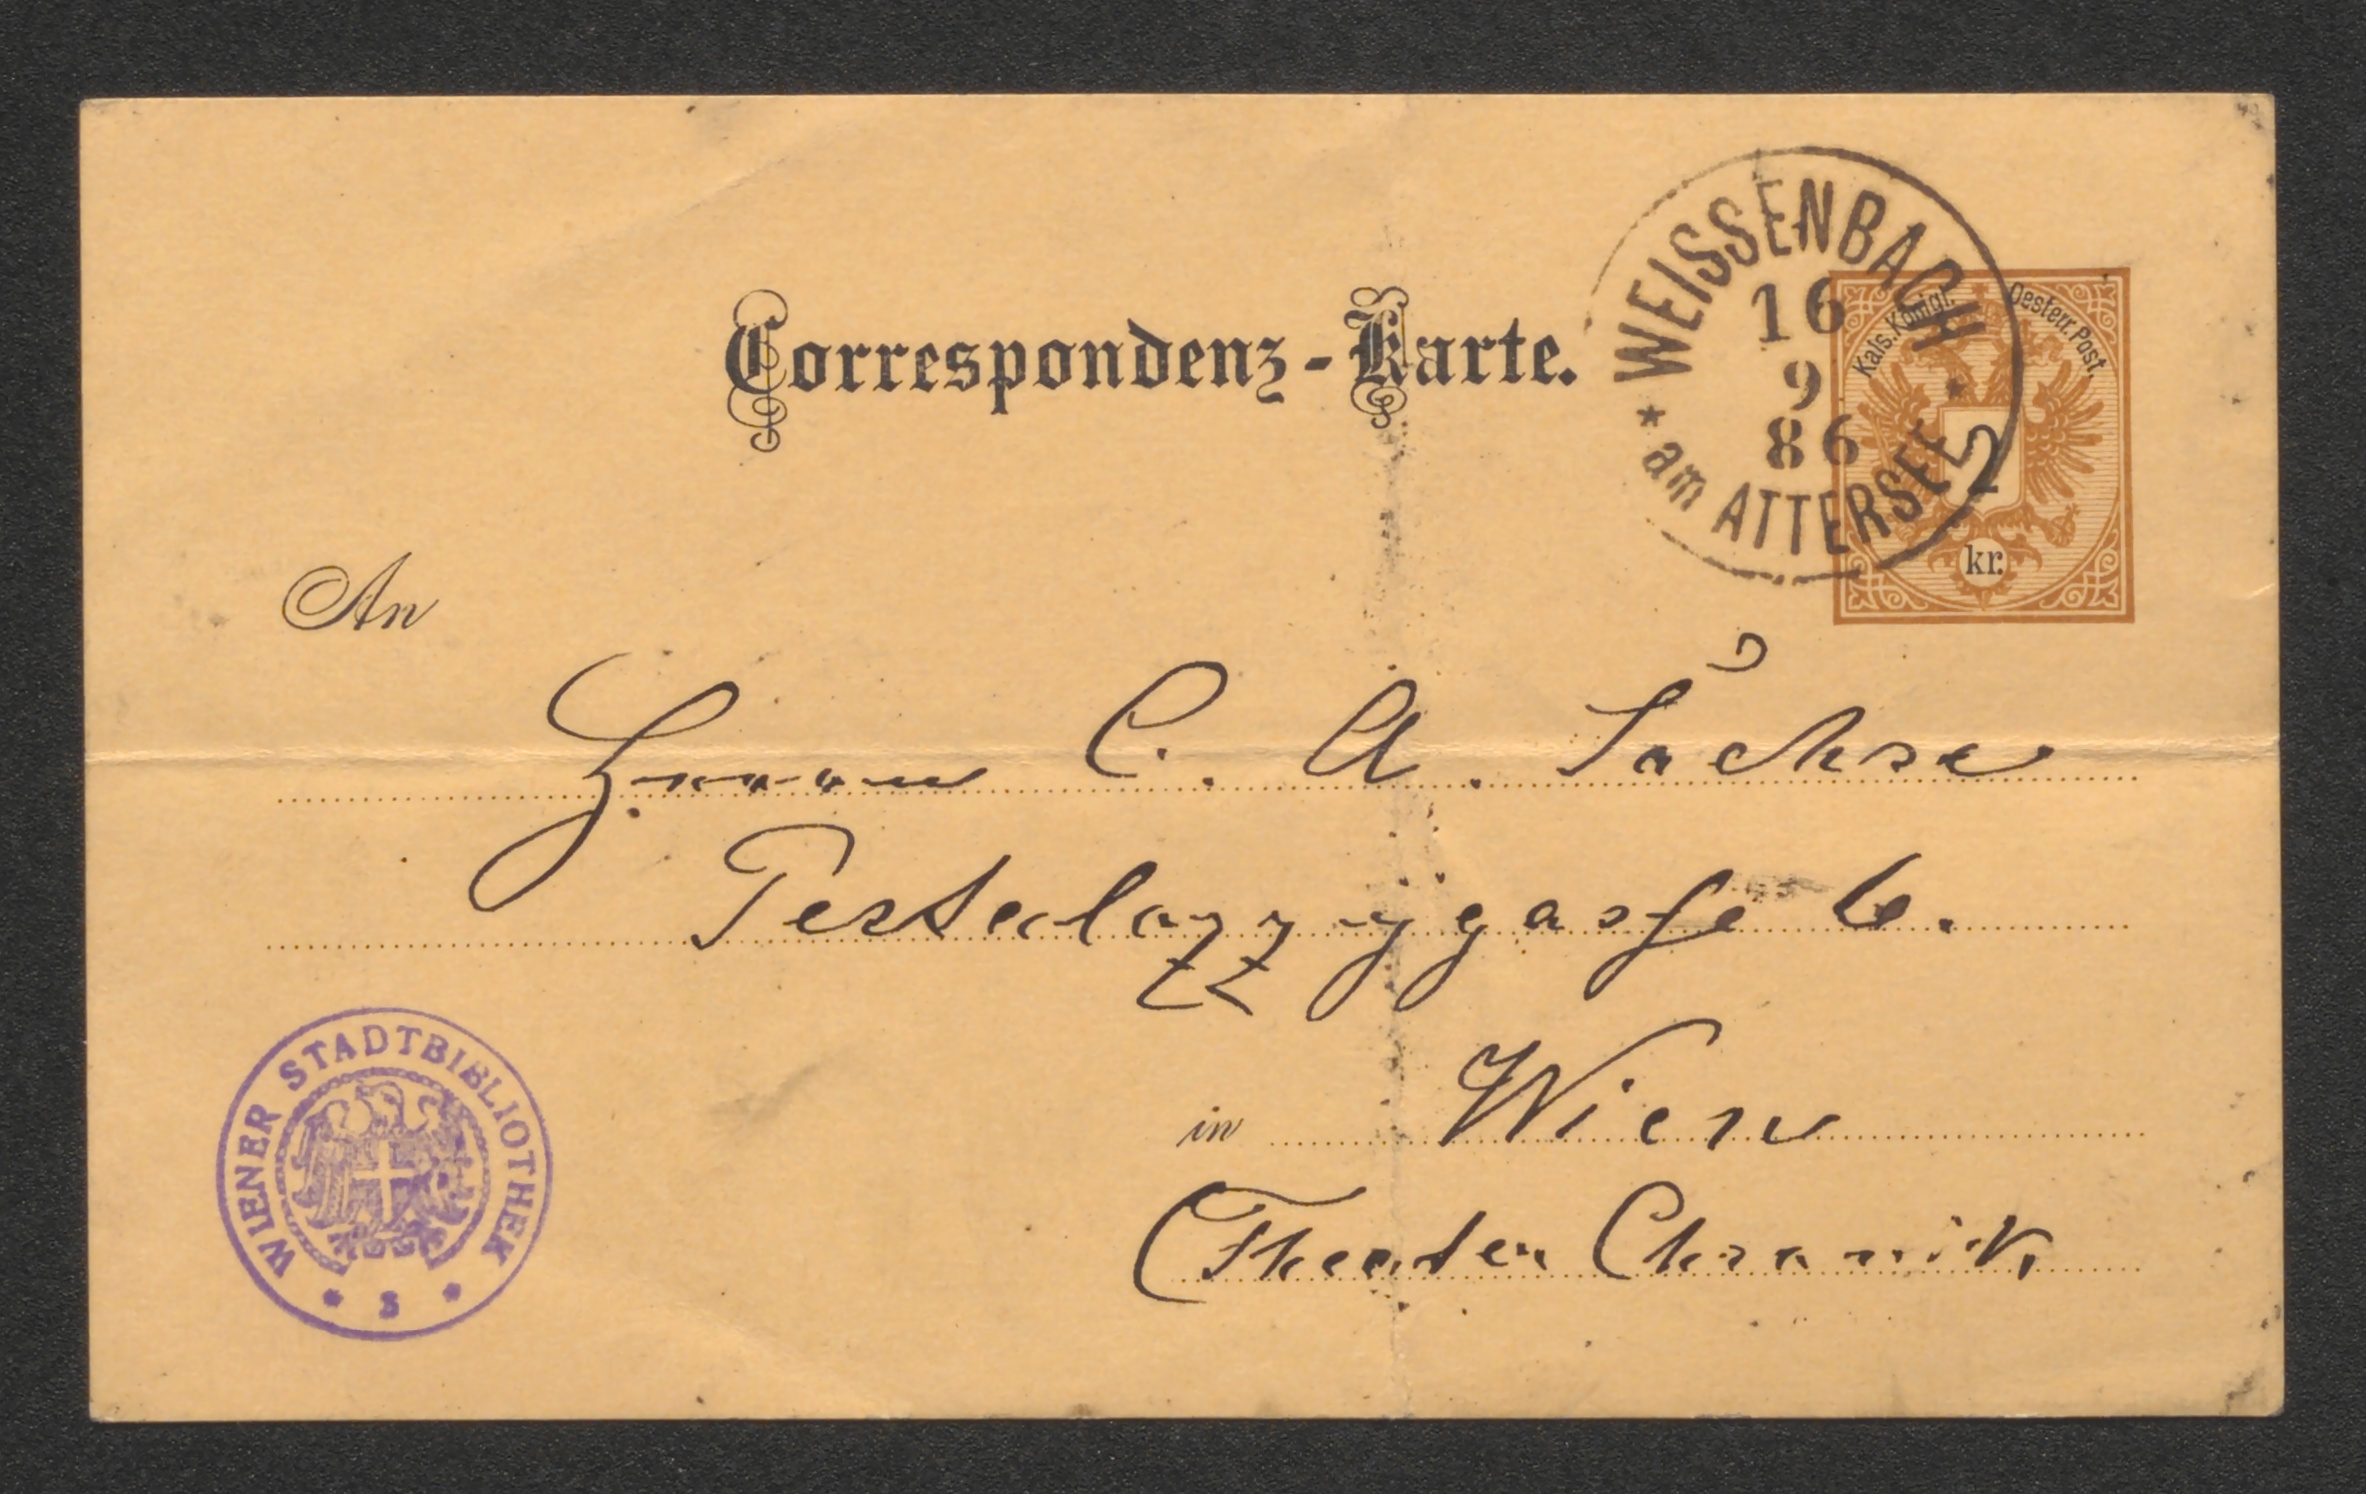 Correspondenz-Karte.
WEISSENBACH
16
9
86
* am ATTERSEE *
Kais. Königl. Oesterr. Post.
2
kr.
An
Herrn C. A. Sachse
Pestalozzygasse 6.
in Wien
(Theater Chronik
WIENER STADTBIBLIOTHEK
* S *